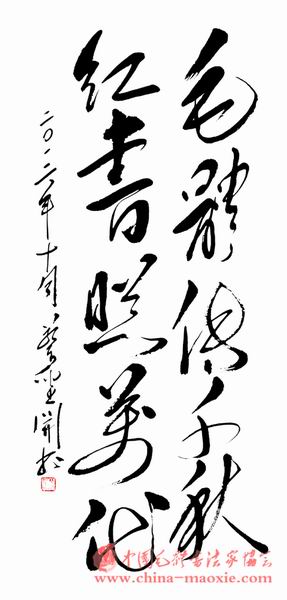 毛體传千秋
红書照萬代
二〇一二年十月
中国毛體書法家協会
www.china-maoxie.com